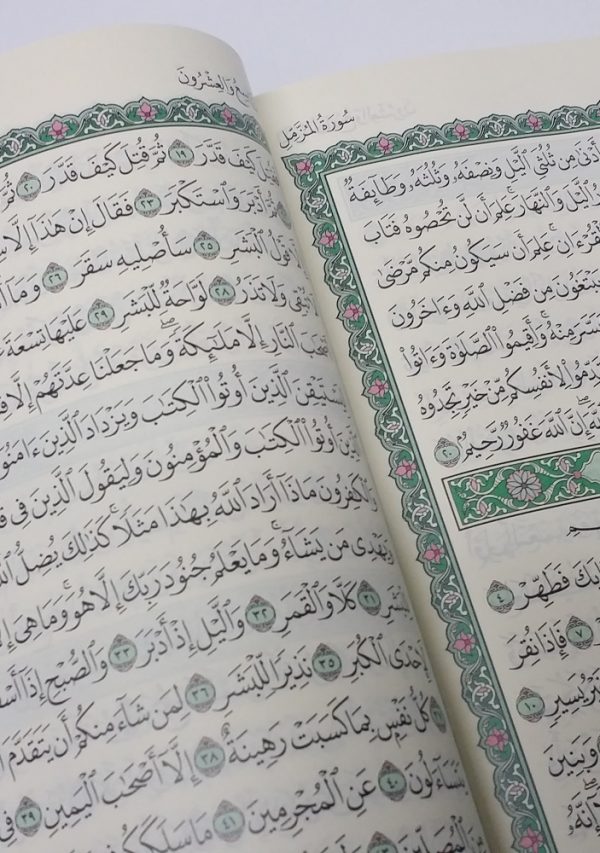 سُورَةُ الْمُزَّمِّلِ
أَدْنَىٰ مِن ثُلُثَيِ ٱلَّيْلِ وَنِصْفَهُۥ وَثُلُثَهُۥ وَطَآئِفَةٌ
ٱلَّيْلَ وَٱلنَّهَارَ ۚ عَلِمَ أَن لَّن تُحْصُوهُ فَتَابَ
ٱلْقُرْءَانِ ۚ عَلِمَ أَن سَيَكُونُ مِنكُم مَّرْضَىٰ
يَبْتَغُونَ مِن فَضْلِ ٱللَّهِ وَءَاخَرُونَ
مِنْهُ ۚ وَأَقِيمُوا۟ ٱلصَّلَوٰةَ وَءَاتُوا۟
لِأَنفُسِكُم مِّنْ خَيْرٍ تَجِدُوهُ
إِنَّ ٱللَّهَ غَفُورٌ رَّحِيمٌۢ ٢٠
فَطَهِّرْ ٤
٧ فَإِذَا نُقِرَ
يَسِيرٍ ١٠
وَبَنِينَ
إِنَّهُۥ
وَالْعِشْرُونَ
كَيْفَ قَدَّرَ ١٩ ثُمَّ قُتِلَ كَيْفَ قَدَّرَ ٢٠ ثُمَّ
أَدْبَرَ وَٱسْتَكْبَرَ ٢٣ فَقَالَ إِنْ هَٰذَآ إِلَّا
قَوْلُ ٱلْبَشَرِ ٢٥ سَأُصْلِيهِ سَقَرَ ٢٦ وَمَآ
وَلَا تَذَرُ ٢٨ لَوَّاحَةٌ لِّلْبَشَرِ ٢٩ عَلَيْهَا تِسْعَةَ
ٱلنَّارِ إِلَّا مَلَٰٓئِكَةً ۙ وَمَا جَعَلْنَا عِدَّتَهُمْ إِلَّا
لِيَسْتَيْقِنَ ٱلَّذِينَ أُوتُوا۟ ٱلْكِتَٰبَ وَيَزْدَادَ ٱلَّذِينَ
ٱلَّذِينَ أُوتُوا۟ ٱلْكِتَٰبَ وَٱلْمُؤْمِنُونَ ۙ وَلِيَقُولَ ٱلَّذِينَ فِى
وَٱلْكَٰفِرُونَ مَاذَآ أَرَادَ ٱللَّهُ بِهَٰذَا مَثَلًا ۚ كَذَٰلِكَ يُضِلُّ
وَيَهْدِى مَن يَشَآءُ ۚ وَمَا يَعْلَمُ جُنُودَ رَبِّكَ إِلَّا هُوَ ۚ وَمَا هِىَ
لِلْبَشَرِ ٣١ كَلَّا وَٱلْقَمَرِ ٣٢ وَٱلَّيْلِ إِذْ أَدْبَرَ ٣٣ وَٱلصُّبْحِ إِذَآ
لَإِحْدَى ٱلْكُبَرِ ٣٥ نَذِيرًا لِّلْبَشَرِ ٣٦ لِمَن شَآءَ مِنكُمْ أَن يَتَقَدَّمَ
٣٧ كُلُّ نَفْسٍۭ بِمَا كَسَبَتْ رَهِينَةٌ ٣٨ إِلَّآ أَصْحَٰبَ ٱلْيَمِينِ ٣٩ فِى
يَتَسَآءَلُونَ ٤٠ عَنِ ٱلْمُجْرِمِينَ ٤١ مَا سَلَكَكُمْ
ٱلْمُصَلِّينَ